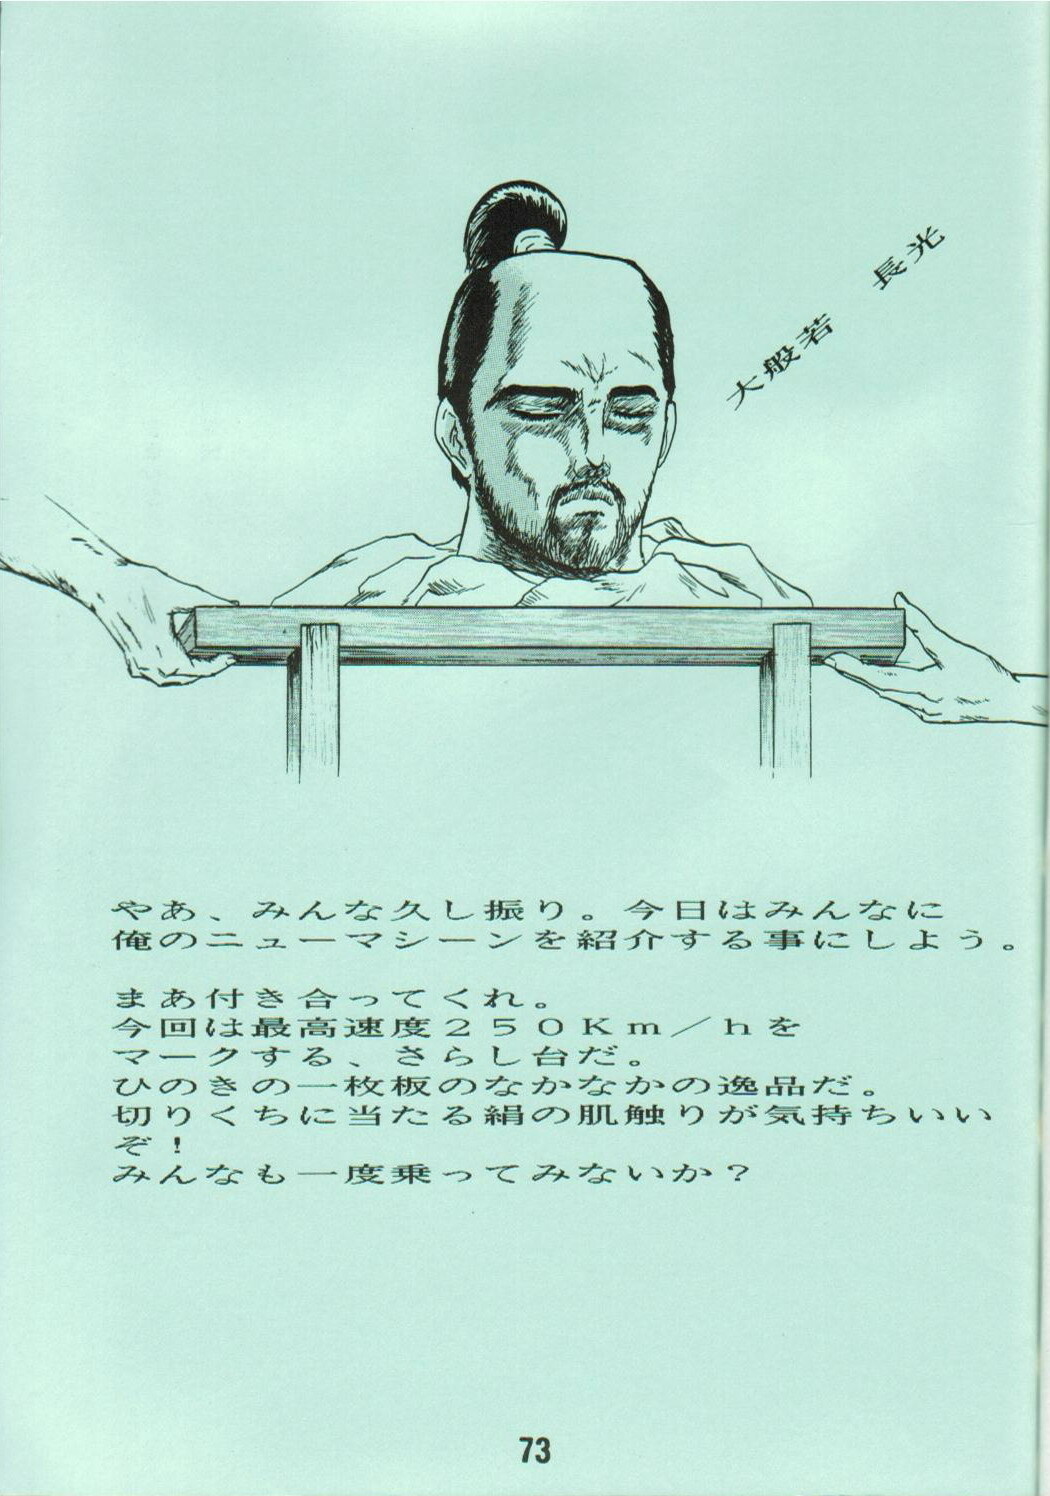 大般若　長光
やあ、みんな久し振り。今日はみんなに
俺のニューマシーンを紹介する事にしよう。
まあ付き合ってくれ。
今回は最高速度２５０Ｋｍ／ｈを
マークする、さらし台だ。
ひのきの一枚板のなかなかの逸品だ。
切りくちに当たる絹の肌触りが気持ちいい
ぞ！
みんなも一度乗ってみないか？
73